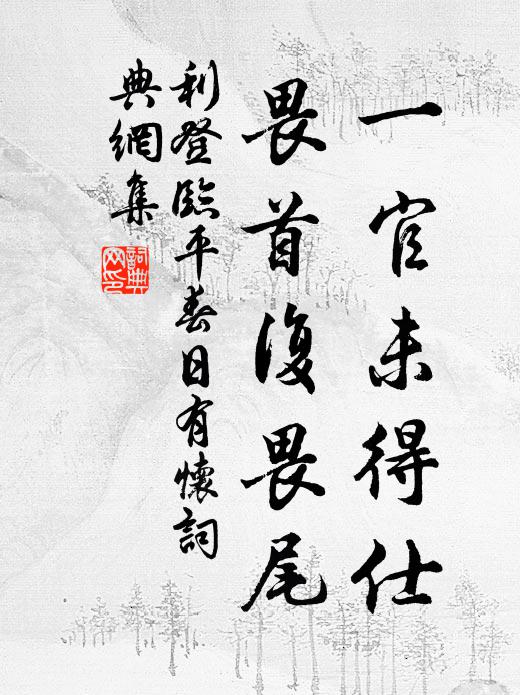 一官未得仕
畏首復畏尾
利登臨平春日有懷詞
典網集
詞典網印